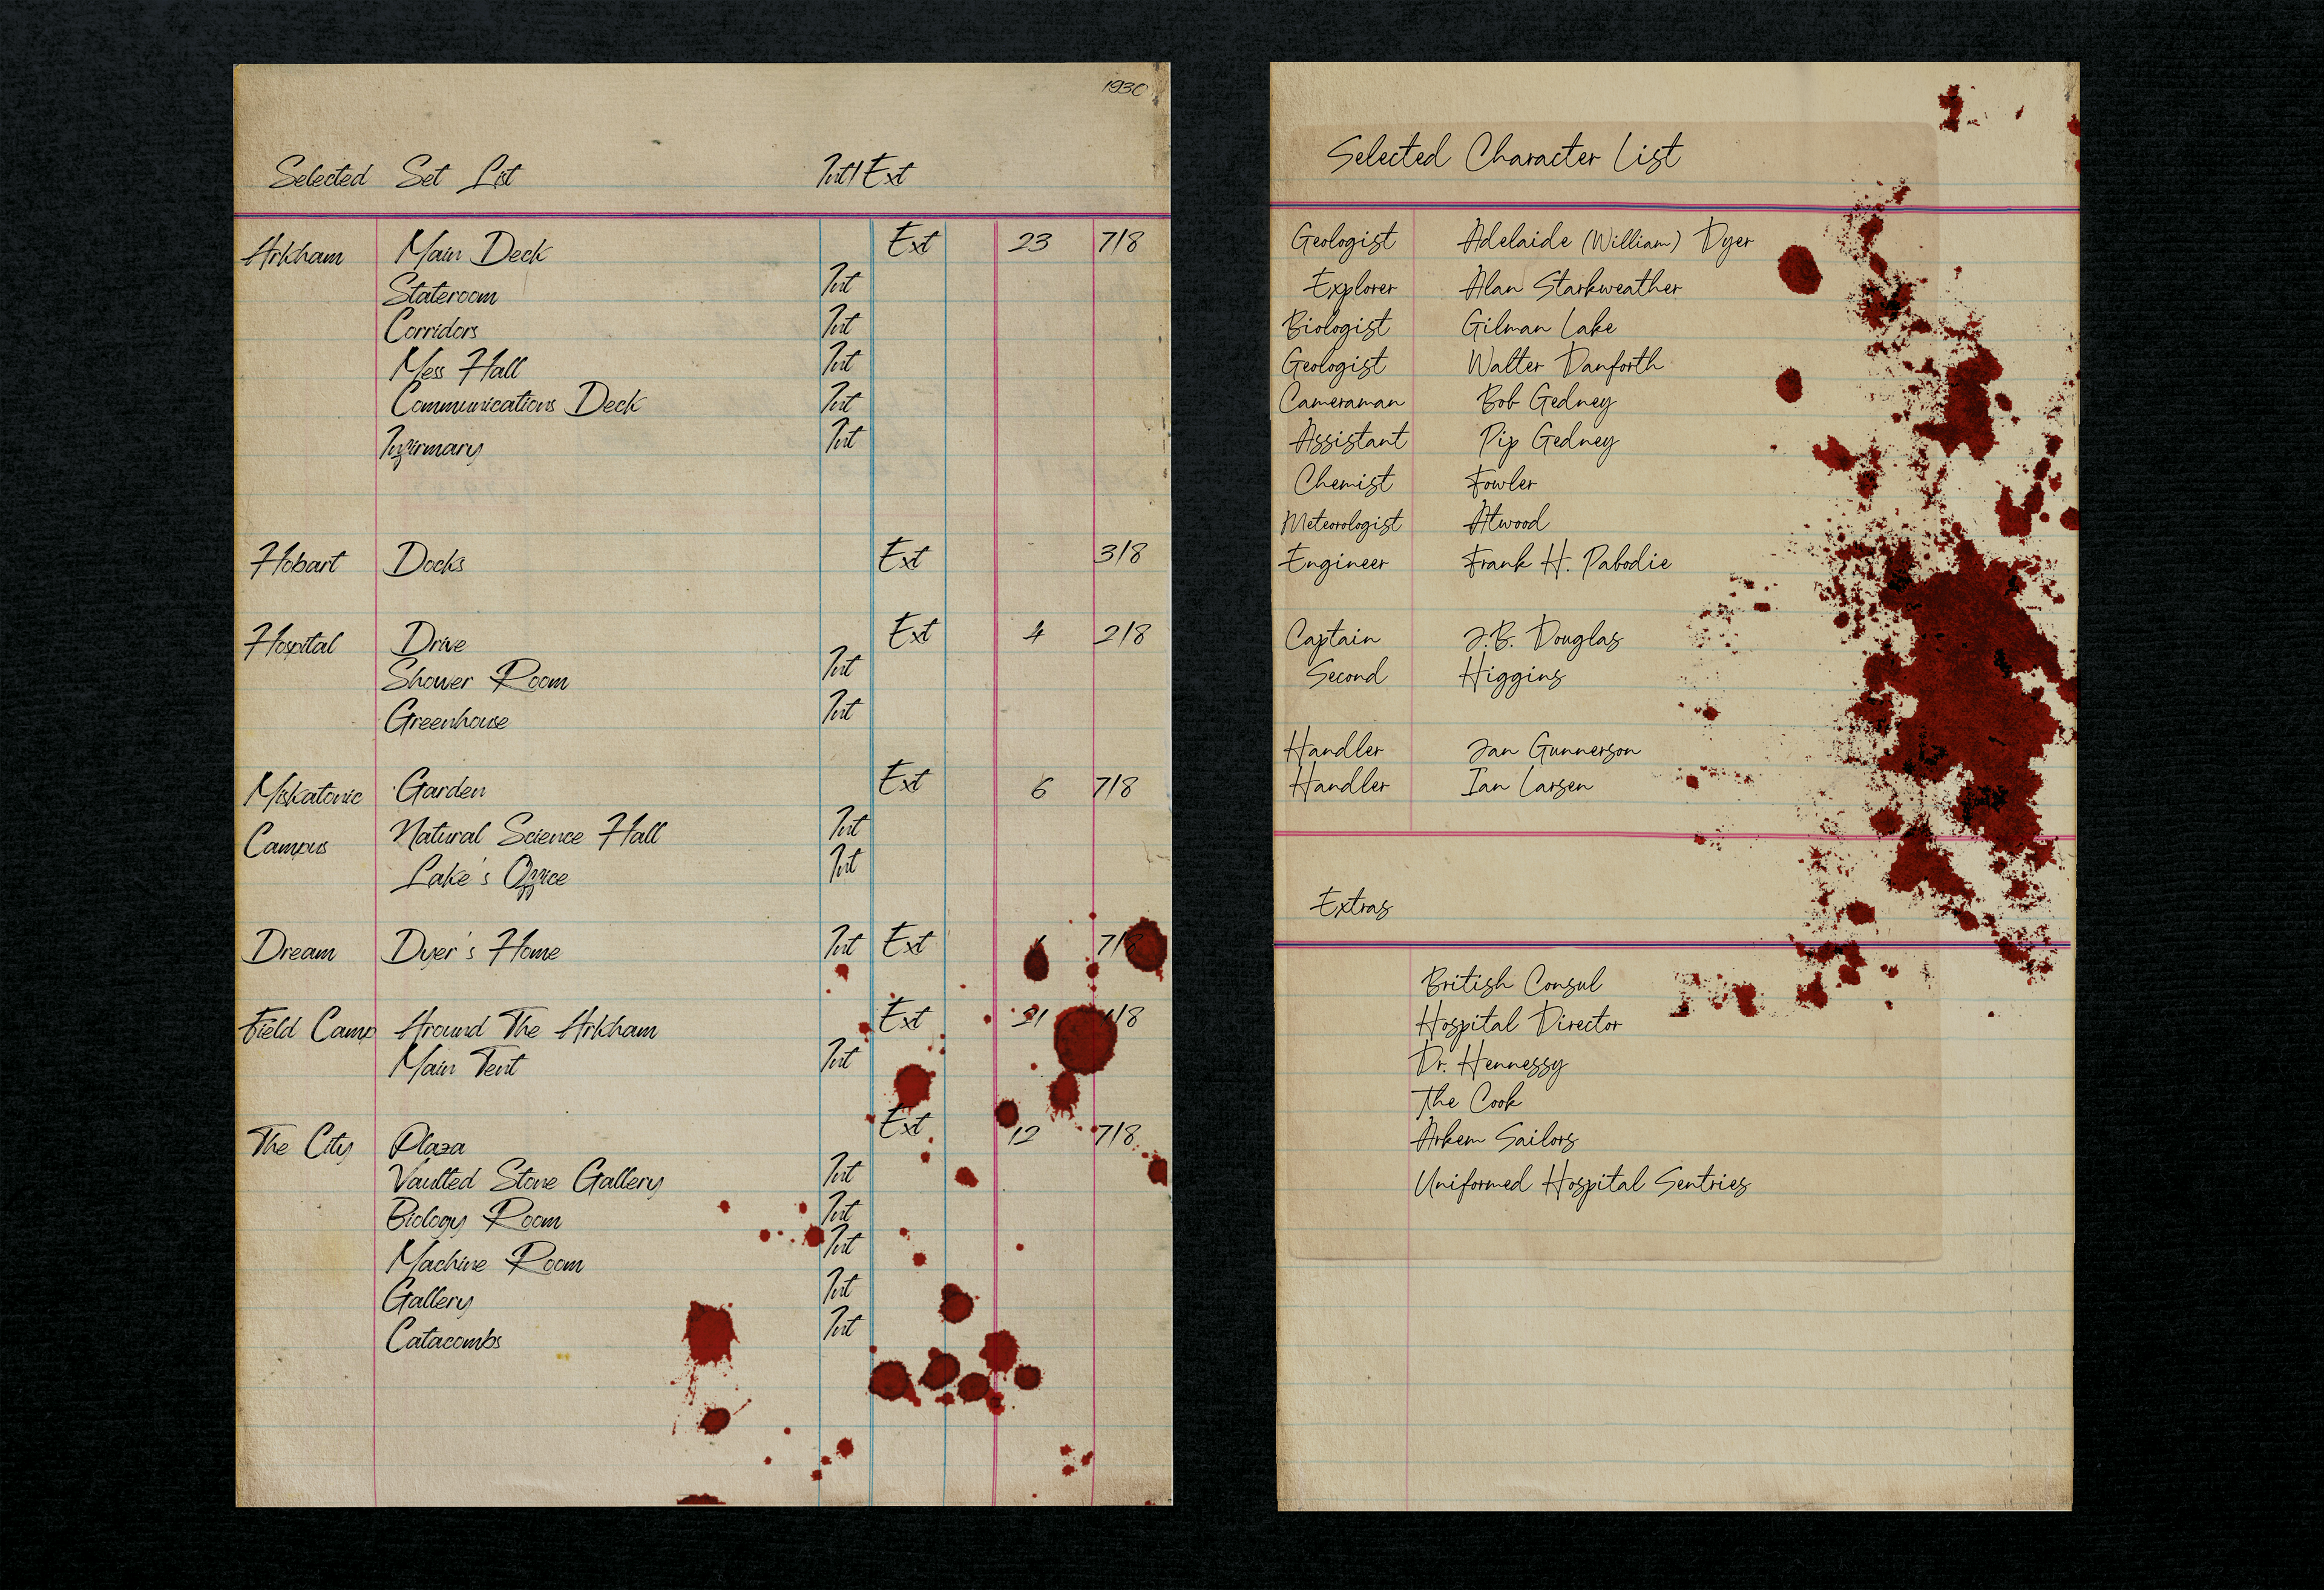 1930
Selected Set List Int/Ext
Arkham Main Deck Ext 23 7/8
Stateroom Int
Corridors Int
Mess Hall Int
Communications Deck Int
Infirmary Int
Hobart Docks Ext 3/8
Hospital Drive Ext 4 2/8
Shower Room Int
Greenhouse Int
Miskatonic Garden Ext 6 7/8
Natural Science Hall Int
Campus
Lake's Office Int
Dream Dyer's Home Int Ext
Field Camp Around The Arkham Ext
Main Tent Int
The City Plaza Ext 12 7/8
Vaulted Stone Gallery Int
Biology Room Int
Machine Room Int
Gallery Int
Catacombs Int
Selected Character List
Geologist Adelaide (William) Dyer
Explorer Alan Starkweather
Biologist Gilman Lake
Geologist Walter Danforth
Cameraman Bob Gedney
Assistant Pip Gedney
Chemist Fowler
Meteorologist Atwood
Engineer Frank H. Pabodie
Captain J.B. Douglas
Second Higgins
Handler Jan Gunnerson
Handler Ian Larsen
Extras
British Consul
Hospital Director
Dr. Hennessy
The Cook
Arkem Sailors
Uniformed Hospital Sentries